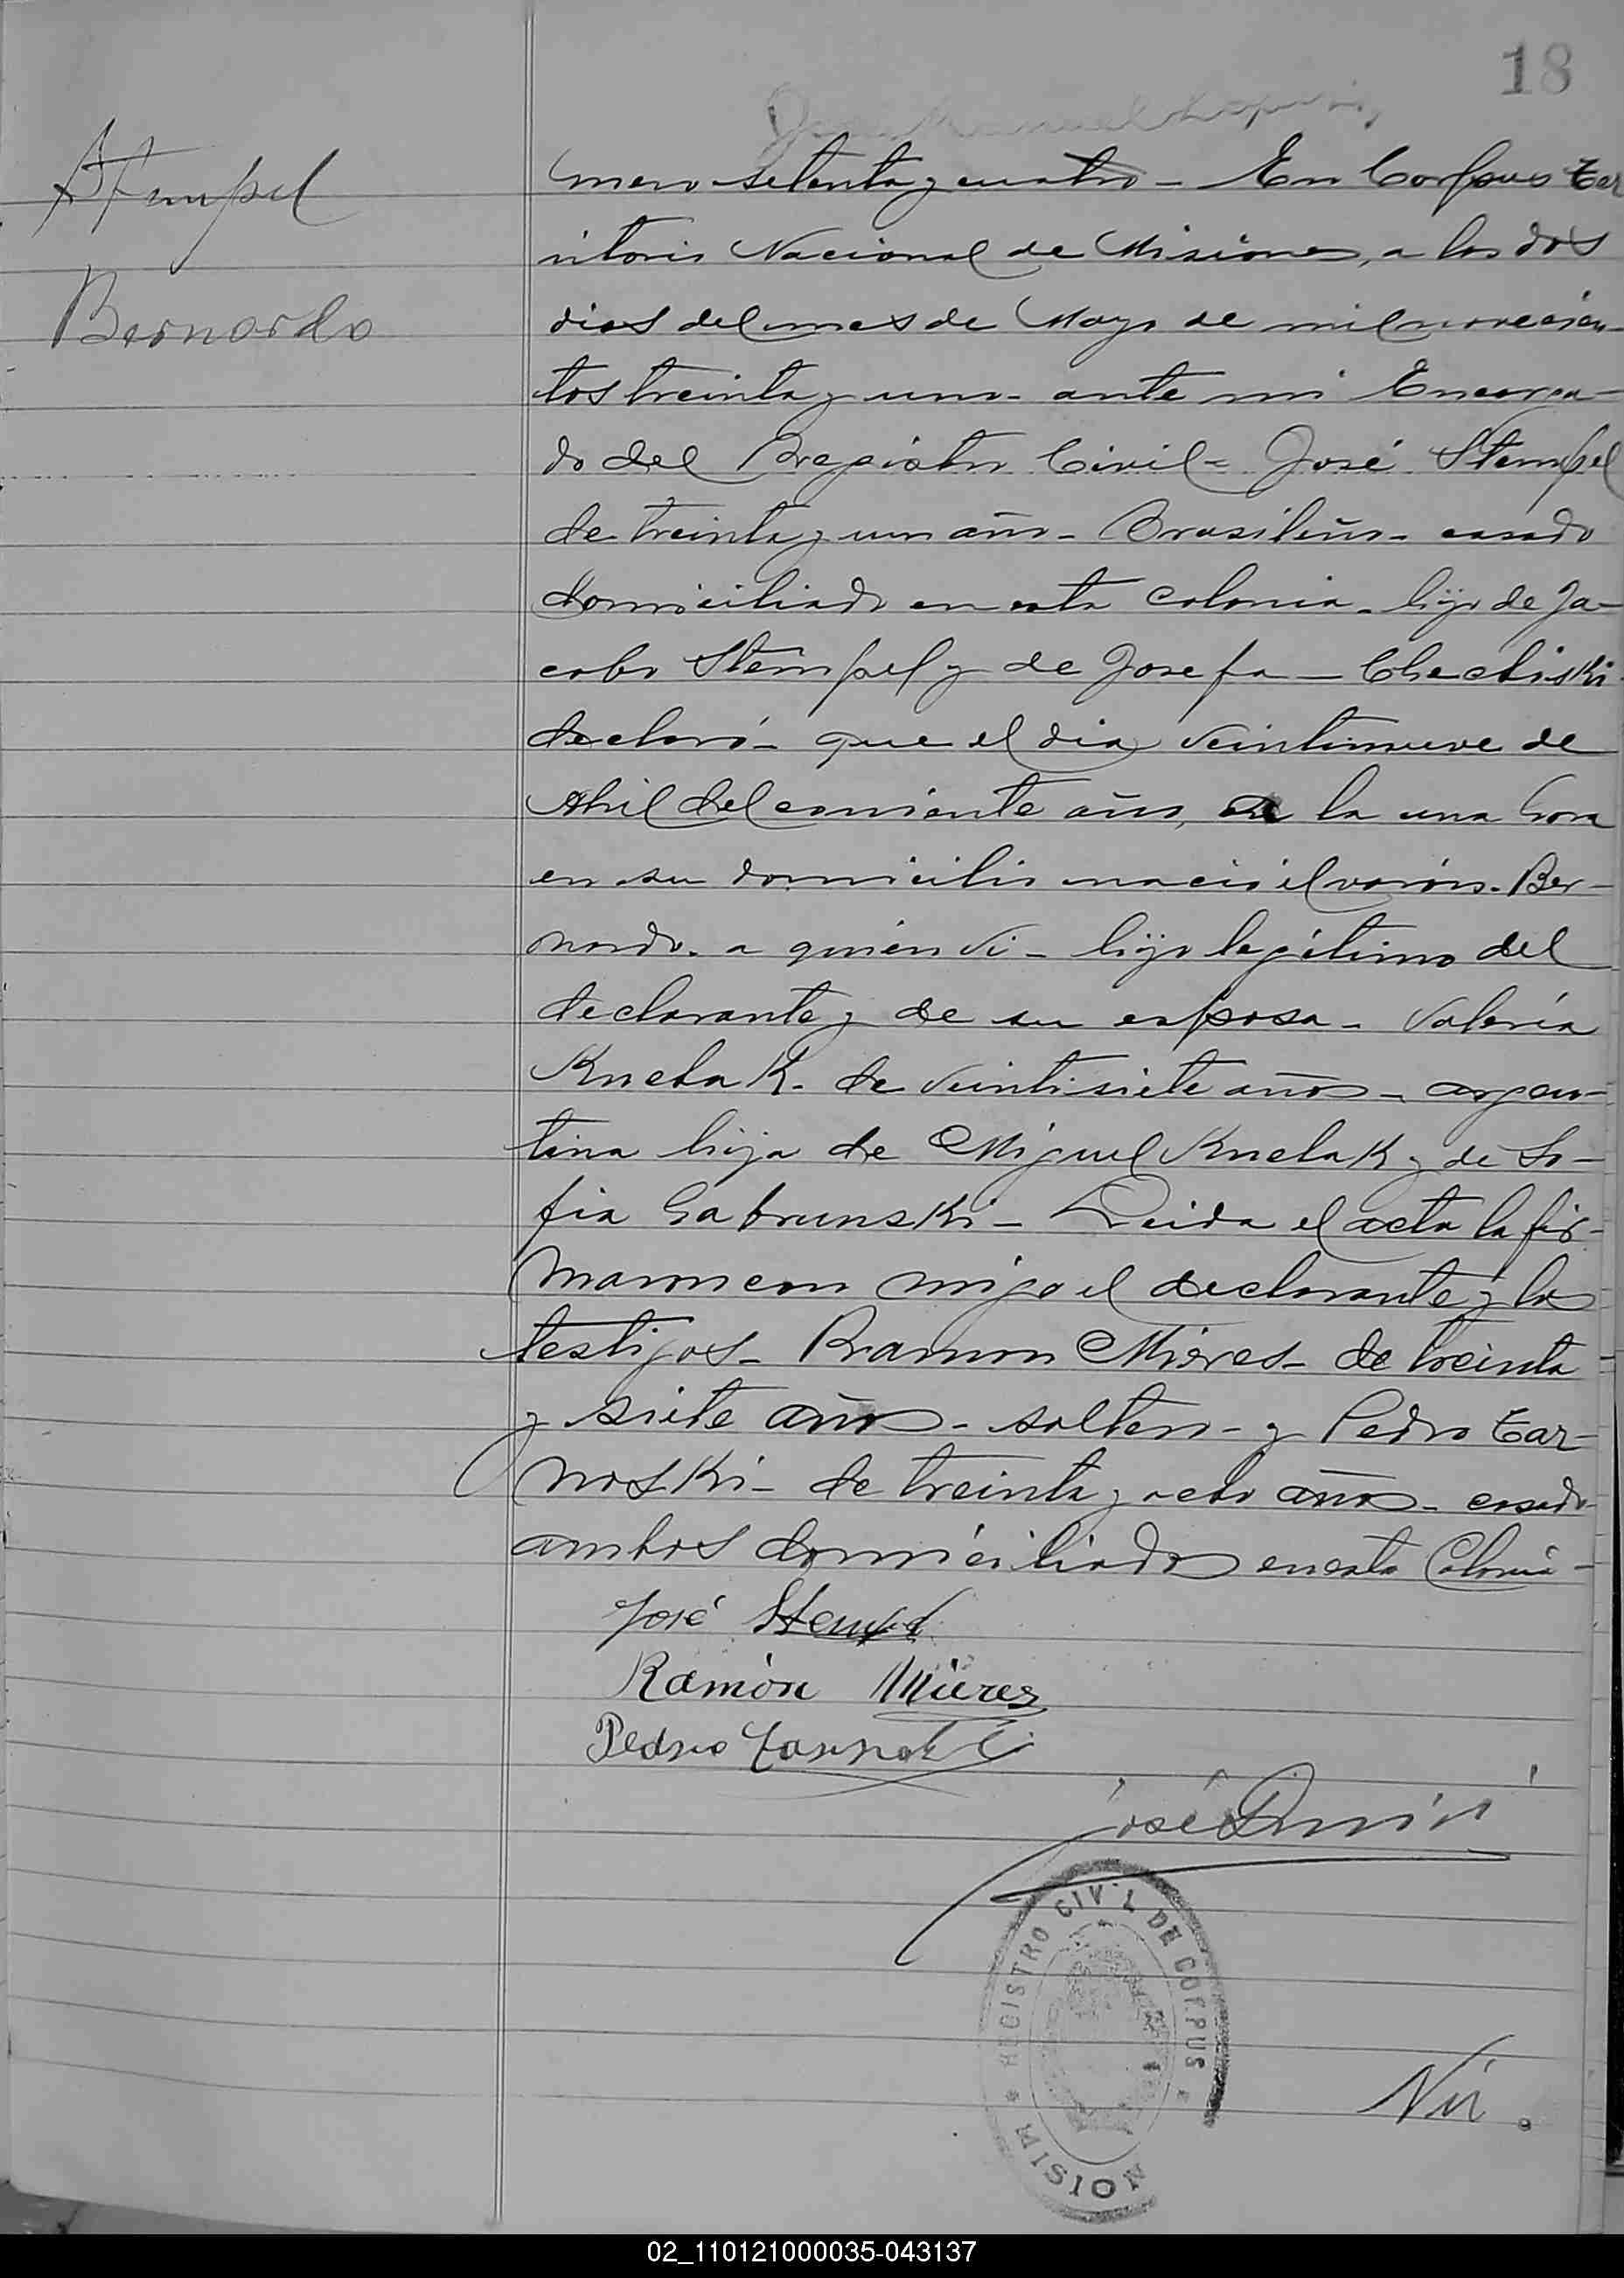 18
Stempel
Bernardo
mero setenta y cuatro - En Corpus Ter
ritorio Nacional de Misiones, a los dos
dias del mes de Mayo de mil novecien-
tos treinta y uno - ante mi Encarga-
do del Registro Civil = José Stempel
de treinta y un año - Brasileño - casado
domiciliado en esta colonia - hijo de Ja-
cobo Stempel y de Josefa - Chechiski
declaró - que el dia veintinueve de
Abril del corriente año, a la una hora
en su domicilio nació el varón - Ber-
nardo - a quien vi - hijo legítimo del
declarante y de su esposa - Valería
Knelak - de veintisiete años - argen-
tina hija de Miguel Knelak y de So-
fia Gabrunski - Leida el acta la fir-
maron con migo el declarante y los
testigos - Ramon Mieres - de treinta
y siete años - soltero - y Pedro Tar-
noski - de treinta y ocho años - casado
ambos domiciliados en esta Colonia -
José Stempel
Ramón Mieres
Pedro Tarnoski
José
REGISTRO CIVIL DE CORPUS
MISION
Nú.
02_110121000035-043137